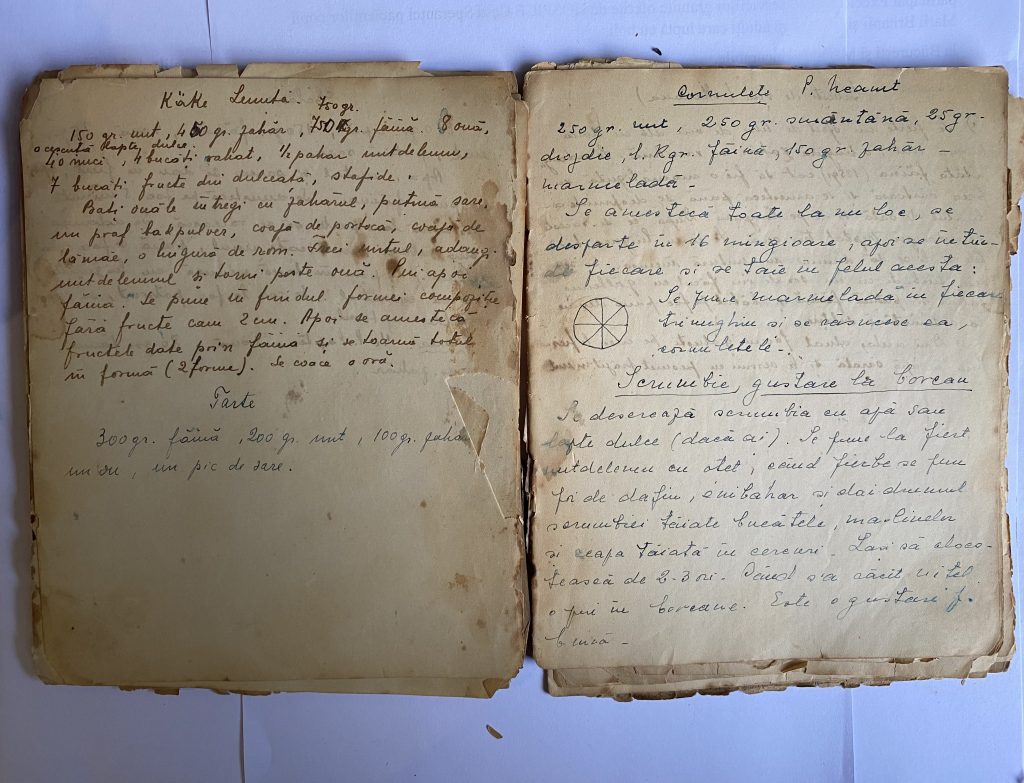 Käke Lenuta.
750gr.
150 gr. unt, 450 gr. zahăr, 750 gr. făină. 8 ouă,
o ceșcuță lapte dulce.
40 nuci, 4 bucăți rahat, ½ pahar untdelemn,
7 bucăți fructe din dulceată, stafide.
Bați ouăle întregi cu zahărul, puțină sare,
un praf bakpulver, coajă de portocă, coajă de
lămâe, o lingură de rom. Freci untul, adaug
untdelemnul si torni peste ouă. Pui apoi
făina. Se pune în fundul formei compoziție
fără fructe cam 2 cm. Apoi se amestecă
fructele date prin făină si se toarnă totul
în formă (2 forme). Se coace o oră.
Tarte
300 gr. făină, 200 gr. unt, 100 gr. zahăr
un ou, un pic de sare.
Cornulete P. Neamt
250 gr. unt, 250 gr. smântână, 25 gr.
drojdie, 1 Kgr. făină, 150 gr. zahăr -
marmeladă -
Se amestecă toate la un loc, se
desparte în 16 mingioare, apoi se întin-
de fiecare si se taie în felul acesta:
Se pune marmeladă în fiecare
triunghiu si se răsucesc ca
cornuletele -.
Scrumbie, gustare la borcan
Se desarează scrumbia cu apă sau
lapte dulce (dacă ai). Se pune la fiert
untdelemn cu otet, când fierbe se pun
foi de dafin, enibahar si dai drumul
scrumbiei tăiate bucătele, maslinelor
si ceapa tăiată în cercuri. Lasi să cloco-
tească de 2-3 ori. Când s'a răcit
o pui în borcane. Este o gustare f.
bună -